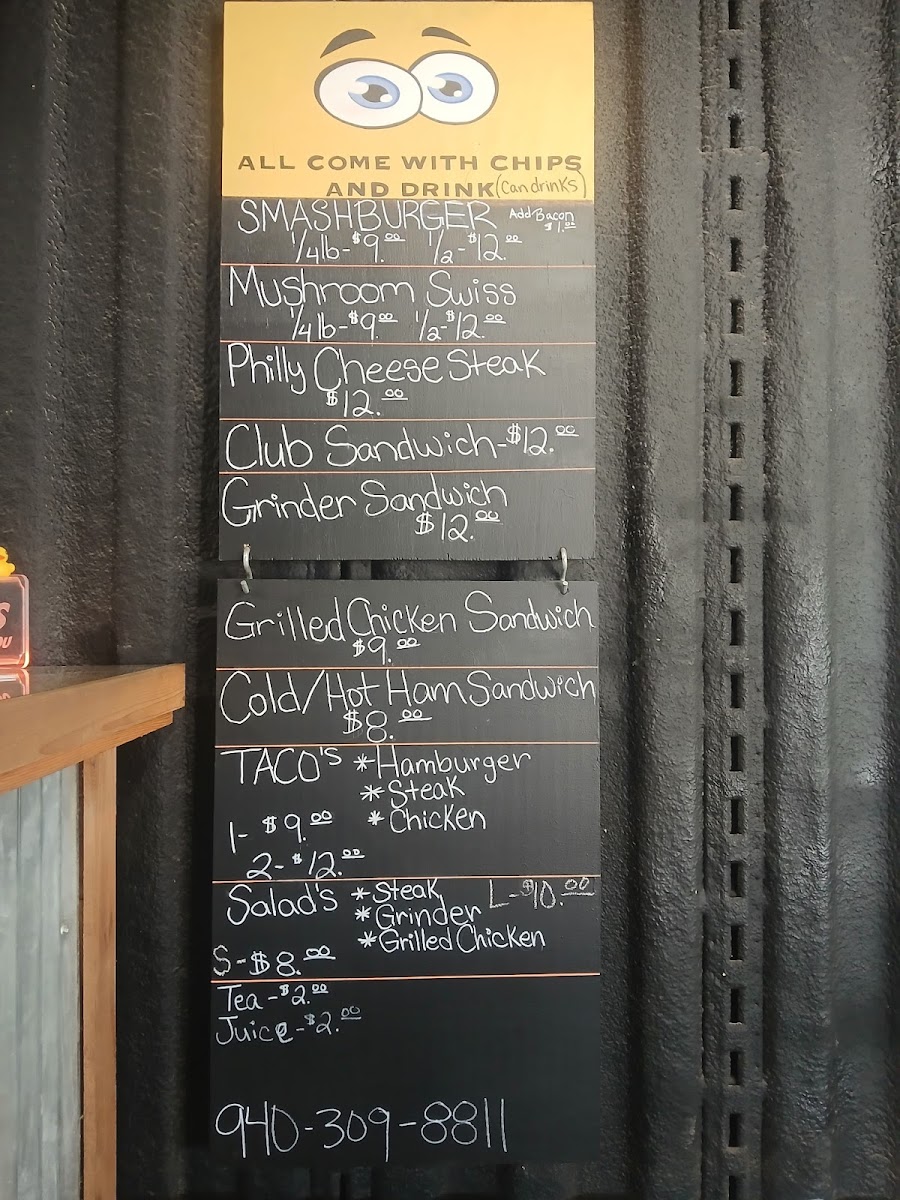 ALL COME WITH CHIPS
AND DRINK (Can drinks)
SMASHBURGER Add Bacon $1.00
1/4 lb-$9.00 1/2-$12.00
Mushroom Swiss
1/4 lb-$9.00 1/2-$12.00
Philly Cheese Steak
$12.00
Club Sandwich-$12.00
Grinder Sandwich
$12.00
Grilled Chicken Sandwich
$9.00
Cold/Hot Ham Sandwich
$8.00
TACO's *Hamburger
*Steak
*Chicken
1- $9.00
2- $12.00
Salad's *Steak L-$10.00
*Grinder
*Grilled Chicken
S-$8.00
Tea-$2.00
Juice-$2.00
940-309-8811